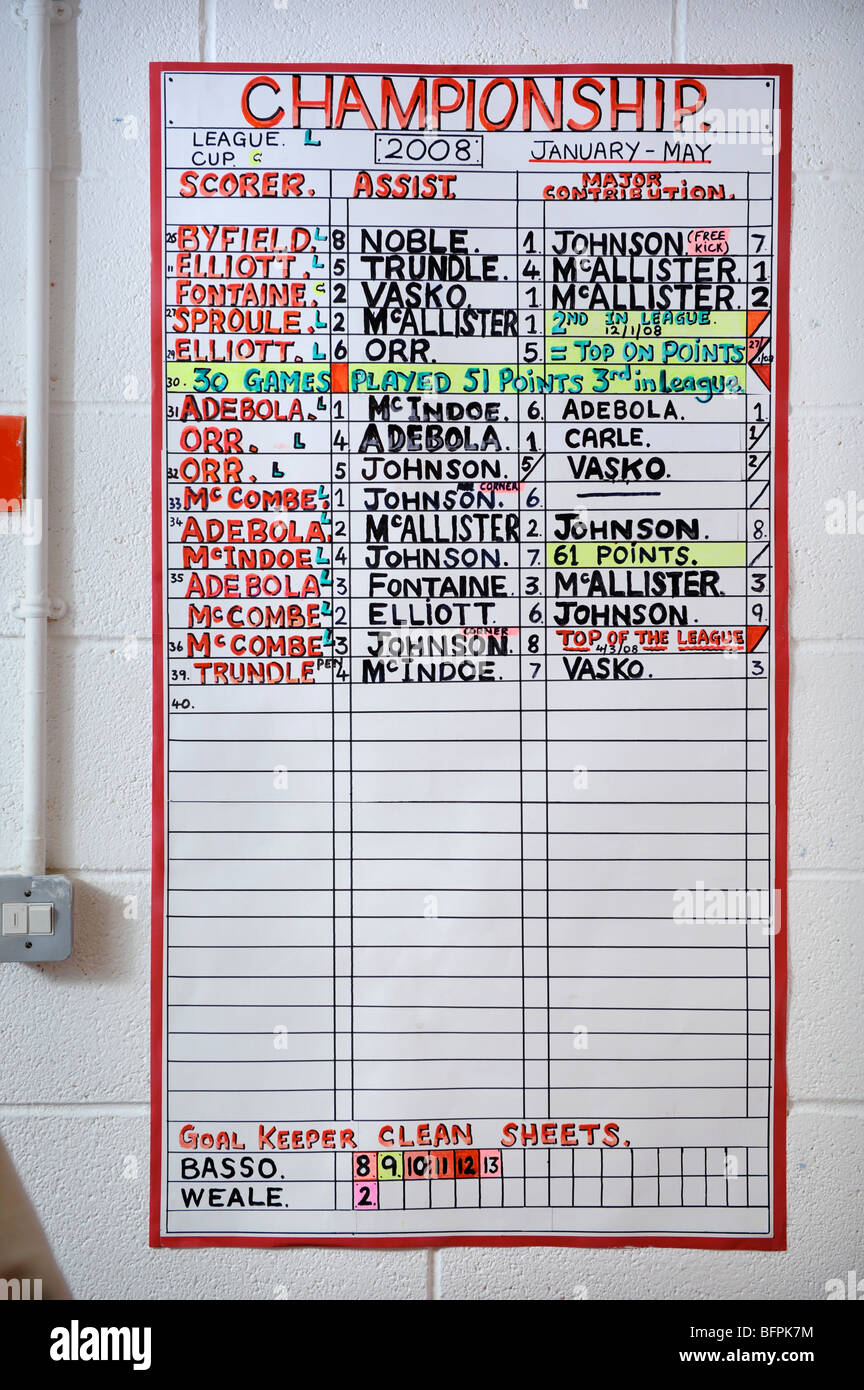 CHAMPIONSHIP.
LEAGUE. L 2008 JANUARY - MAY
CUP. C
SCORER. ASSIST. MAJOR CONTRIBUTION.
25 BYFIELD. L 8 NOBLE. 1 JOHNSON. (FREE KICK) 7
11 ELLIOTT. L 5 TRUNDLE. 4 McALLISTER. 1
FONTAINE. C 2 VASKO. 1 McALLISTER. 2
27 SPROULE. L 2 McALLISTER 1 2ND IN LEAGUE. 12/1/08
29 ELLIOTT. L 6 ORR. 5 = TOP ON POINTS 27/1/08
30. 30 GAMES PLAYED 51 POINTS 3rd in League.
31 ADEBOLA. L 1 McINDOE. 6 ADEBOLA. 1
ORR. L 4 ADEBOLA. 1 CARLE. 1
32 ORR. L 5 JOHNSON. 5 VASKO. 2
33 McCOMBE. L 1 JOHNSON. CORNER 6
34 ADEBOLA. L 2 McALLISTER 2 JOHNSON. 8
McINDOE L 4 JOHNSON. 7 61 POINTS.
35 ADEBOLA L 3 FONTAINE. 3 McALLISTER. 3
McCOMBE L 2 ELLIOTT. 6 JOHNSON. 9
36 McCOMBE L 3 JOHNSON. CORNER 8 TOP OF THE LEAGUE 4/3/08
39. TRUNDLE PEN 4 McINDOE. 7 VASKO. 3
40.
GOAL KEEPER CLEAN SHEETS.
BASSO. 8 9 10 11 12 13
WEALE. 2
alamy
Image ID: BFPK7M
www.alamy.com